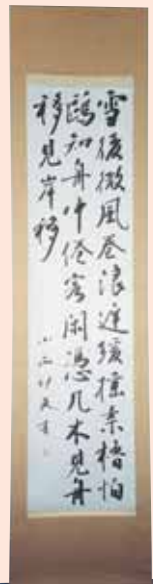 雪後微風卷浪遲緩搖柔櫓怕
鷗知舟中倦客閑憑几不見舟
移見岸移